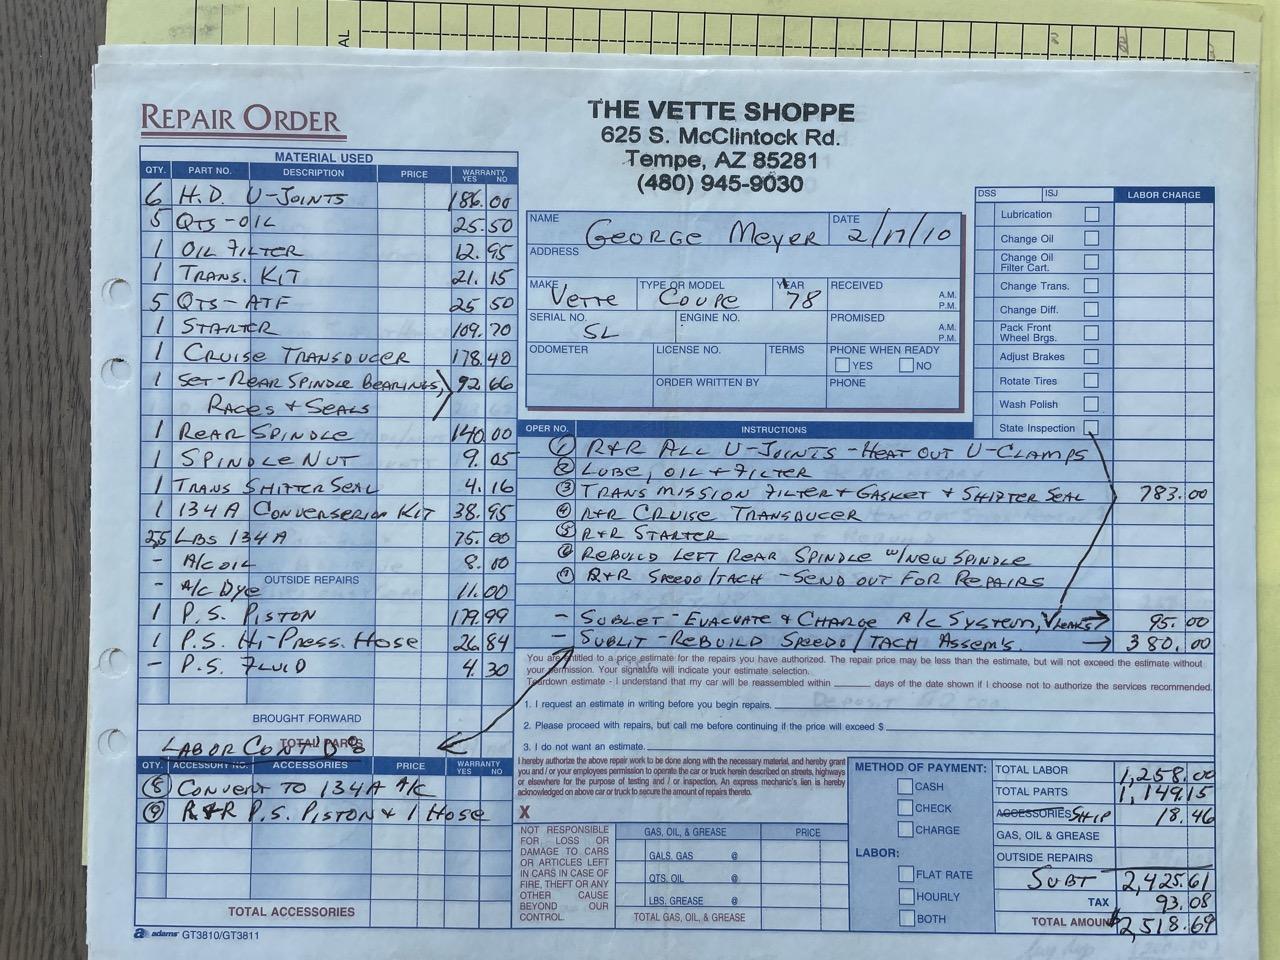 AL
REPAIR ORDER
THE VETTE SHOPPE
625 S. McClintock Rd.
Tempe, AZ 85281
(480) 945-9030
MATERIAL USED
QTY. PART NO. DESCRIPTION PRICE WARRANTY YES NO
6 H.D. U-JOINTS 186.00
5 QTS-OIL 25.50
1 OIL FILTER 12.95
1 TRANS. KIT 21.15
5 QTS-ATF 25 50
1 STARTER 109.70
1 CRUISE TRANSDUCER 178.40
1 SET-REAR SPINDLE BEARINGS, 92.66
RACES & SEALS
1 REAR SPINDLE 140.00
1 SPINDLE NUT 9.05
1 TRANS SHIFTER SEAL 4.16
1 134A CONVERSERION KIT 38.95
2.5 LBS 134A 75.00
- A/C OIL 8.00
OUTSIDE REPAIRS
- A/C Dye 11.00
1 P.S. PISTON 179.99
1 P.S. Hi-PRESS. HOSE 26.84
- P.S. FLUID 4.30
BROUGHT FORWARD
TOTAL PARTS
LABOR CONT'D
QTY. ACCESSORY NO. ACCESSORIES PRICE WARRANTY YES NO
8 CONVERT TO 134A A/C
9 R&R P.S. PISTON & 1 HOSE
TOTAL ACCESSORIES
adams GT3810/GT3811
NAME GEORGE MEYER DATE 2/17/10
ADDRESS
MAKE Vette TYPE OR MODEL COUPE YEAR '78 RECEIVED A.M. P.M.
SERIAL NO. SL ENGINE NO. PROMISED A.M. P.M.
ODOMETER LICENSE NO. TERMS PHONE WHEN READY YES NO
ORDER WRITTEN BY PHONE
DSS ISJ LABOR CHARGE
Lubrication
Change Oil
Change Oil Filter Cart.
Change Trans.
Change Diff.
Pack Front Wheel Brgs.
Adjust Brakes
Rotate Tires
Wash Polish
State Inspection
OPER NO. INSTRUCTIONS
1 R&R ALL U-JOINTS - HEAT OUT U-CLAMPS
2 LUBE, OIL & FILTER
3 TRANSMISSION FILTER & GASKET & SHIFTER SEAL 783.00
4 R&R CRUISE TRANSDUCER
5 R&R STARTER
6 REBUILD LEFT REAR SPINDLE W/NEW SPINDLE
7 R&R SPEEDO/TACH - SEND OUT FOR REPAIRS
- SUBLET - EVACUATE & CHARGE A/C SYSTEM, √ LEAKS 95.00
- SUBLIT - REBUILD SPEEDO/TACH ASSEM'S. 380.00
You are entitled to a price estimate for the repairs you have authorized. The repair price may be less than the estimate, but will not exceed the estimate without
your permission. Your signature will indicate your estimate selection.
Teardown estimate - I understand that my car will be reassembled within ______ days of the date shown if I choose not to authorize the services recommended.
1. I request an estimate in writing before you begin repairs.
2. Please proceed with repairs, but call me before continuing if the price will exceed $
3. I do not want an estimate.
I hereby authorize the above repair work to be done along with the necessary material, and hereby grant
you and / or your employees permission to operate the car or truck herein described on streets, highways
or elsewhere for the purpose of testing and / or inspection. An express mechanic's lien is hereby
acknowledged on above car or truck to secure the amount of repairs thereto.
X
NOT RESPONSIBLE
FOR LOSS OR
DAMAGE TO CARS
OR ARTICLES LEFT
IN CARS IN CASE OF
FIRE, THEFT OR ANY
OTHER CAUSE
BEYOND OUR
CONTROL.
GAS, OIL, & GREASE PRICE
GALS. GAS @
QTS. OIL @
LBS. GREASE @
TOTAL GAS, OIL, & GREASE
METHOD OF PAYMENT:
CASH
CHECK
CHARGE
LABOR:
FLAT RATE
HOURLY
BOTH
TOTAL LABOR 1,258.00
TOTAL PARTS 1,149.15
ACCESSORIES SHIP 18.46
GAS, OIL & GREASE
OUTSIDE REPAIRS
SUBT 2,425.61
TAX 93.08
TOTAL AMOUNT $2,518.69